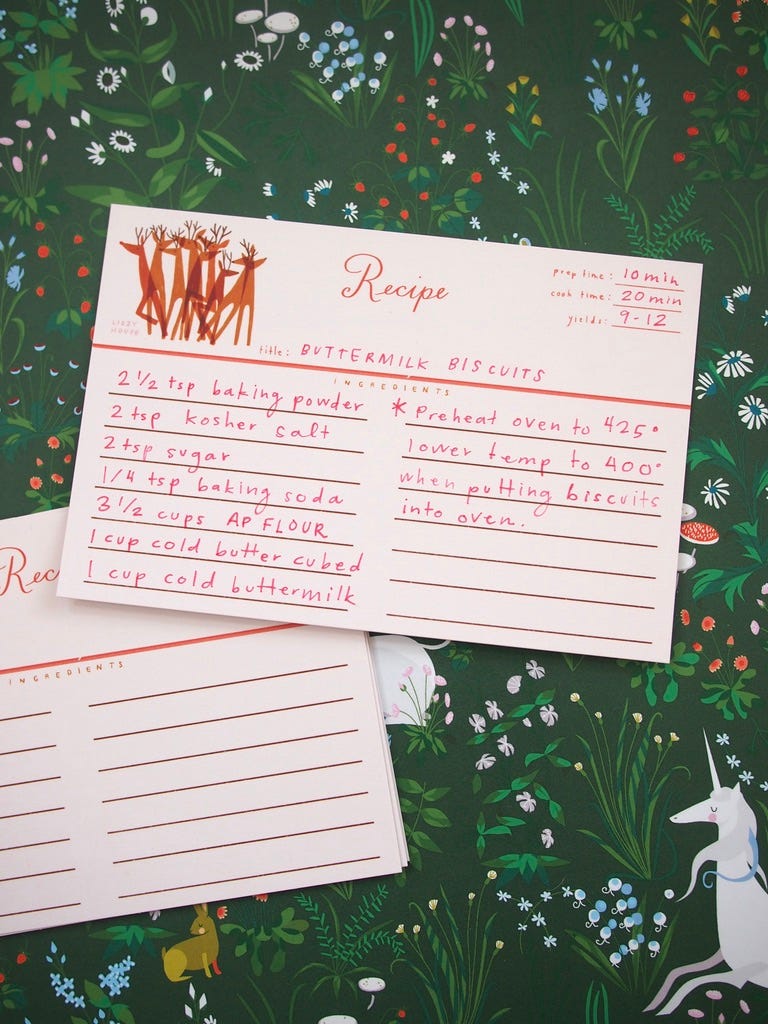 Recipe
prep time: 10 min
cook time: 20 min
yields: 9-12
LIZZY
HOUSE
title: BUTTERMILK BISCUITS
INGREDIENTS
2 1/2 tsp baking powder
2 tsp kosher salt
2 tsp sugar
1/4 tsp baking soda
3 1/2 cups AP FLOUR
1 cup cold butter cubed
1 cup cold buttermilk
* Preheat oven to 425°
lower temp to 400°
when putting biscuits
into oven.
Rec
INGREDIENTS